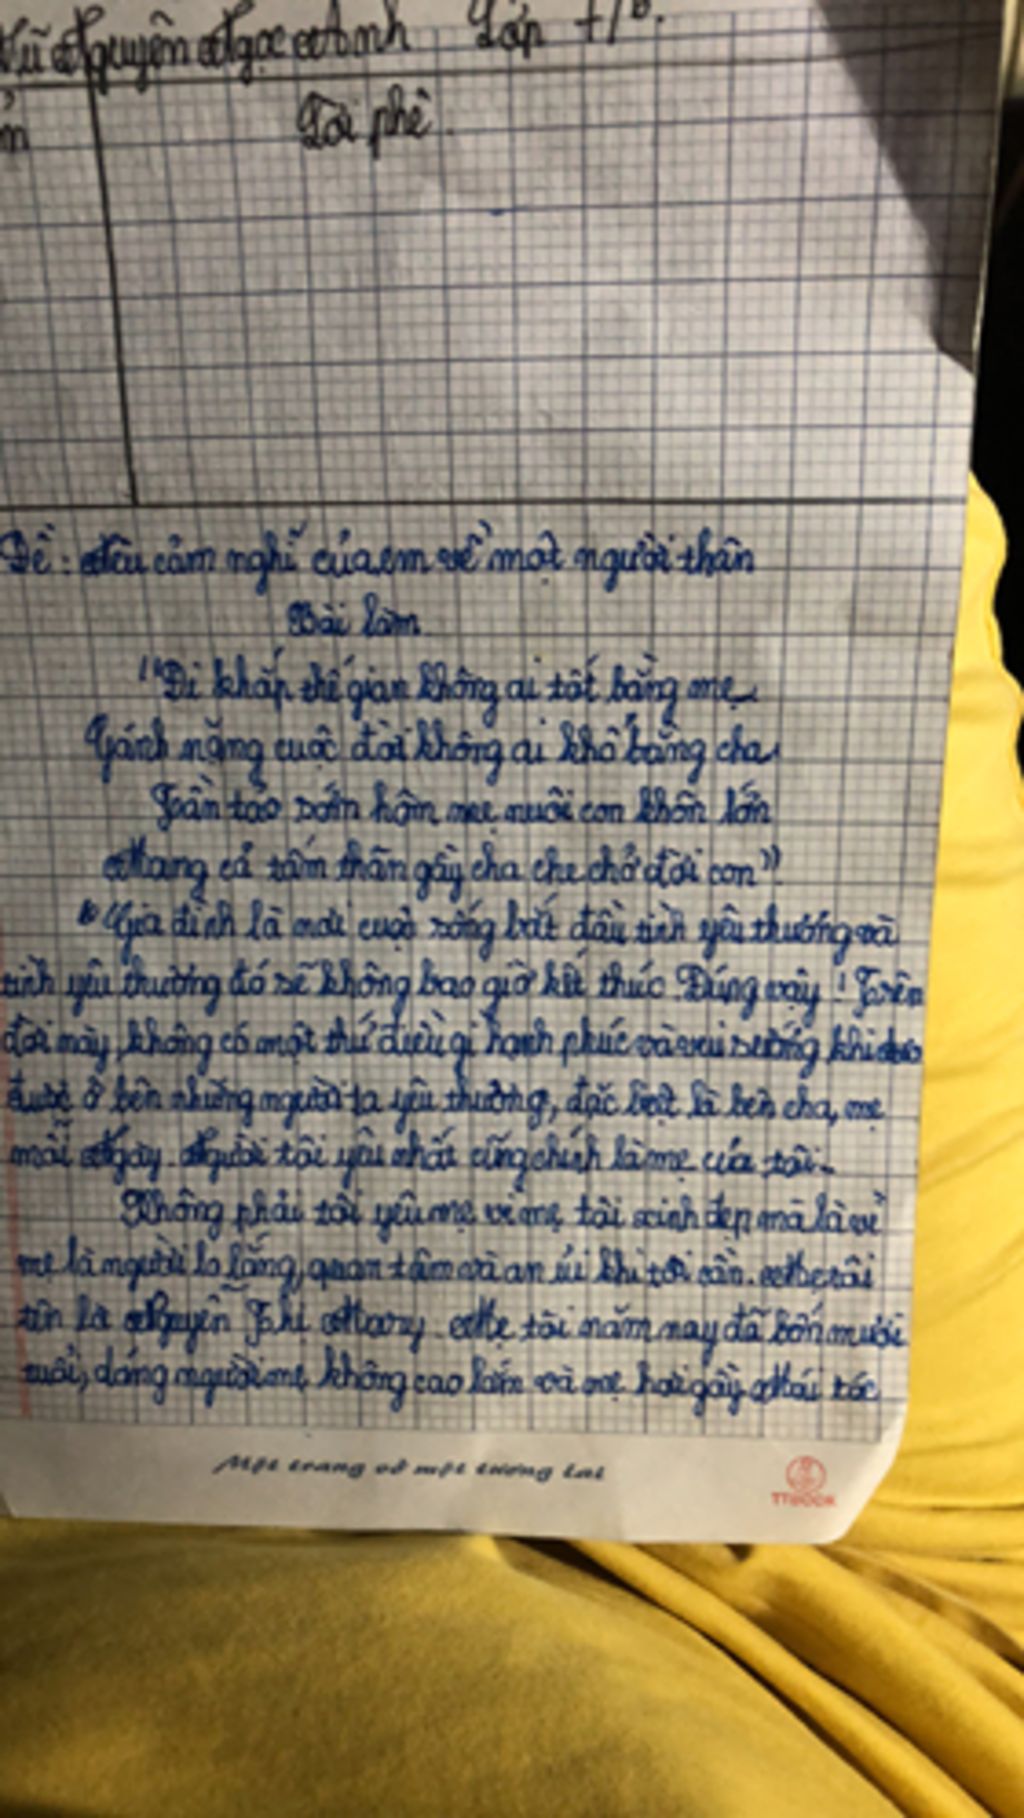 Vũ Nguyễn Ngọc Anh Lớp 7/
Lời phê
Đề: Nêu cảm nghĩ của em về một người thân
Bài làm
"Đi khắp thế gian không ai tốt bằng mẹ
Gánh nặng cuộc đời không ai khổ bằng cha
Tần tảo sớm hôm mẹ nuôi con khôn lớn
Mang cả tấm thân gầy cha che chở đời con"
"Gia đình là nơi cuộc sống bắt đầu tình yêu thương và
tình yêu thương đó sẽ không bao giờ kết thúc. Đúng vậy! Trên
đời này, không có một thứ điều gì hạnh phúc và vui sướng khi
được ở bên những người ta yêu thương, đặc biệt là bên cha, mẹ
mỗi ngày. Người tôi yêu nhất cũng chính là mẹ của tôi.
Không phải tôi yêu mẹ vì mẹ tôi xinh đẹp mà là vì
mẹ là người lo lắng, quan tâm và an ủi khi tôi cần. Mẹ tôi
tên là Nguyễn Thị Mary. Mẹ tôi năm nay đã bốn mươi
tuổi, dáng người mẹ không cao lắm và mẹ hơi gầy. Mái tóc
Một trang vở một tương lai